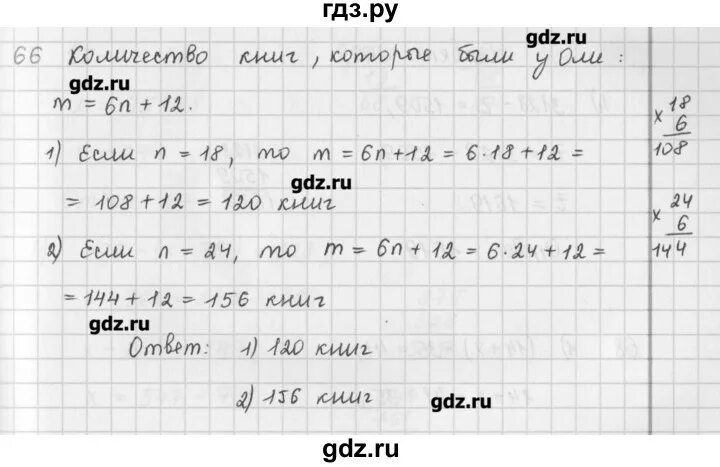 гдз.ру
66 Количество книг, которые были у Оли:
gdz.ru
gdz.ru
m = 6n + 12.
1) Если n = 18, то m = 6n + 12 = 6·18 + 12 =
gdz.ru
= 108 + 12 = 120 книг
2) Если n = 24, то m = 6n + 12 = 6·24 + 12 =
= 144 + 12 = 156 книг
gdz.ru
Ответ: 1) 120 книг
2) 156 книг
gdz.ru
× 18
6
108
× 24
6
144
gdz.ru